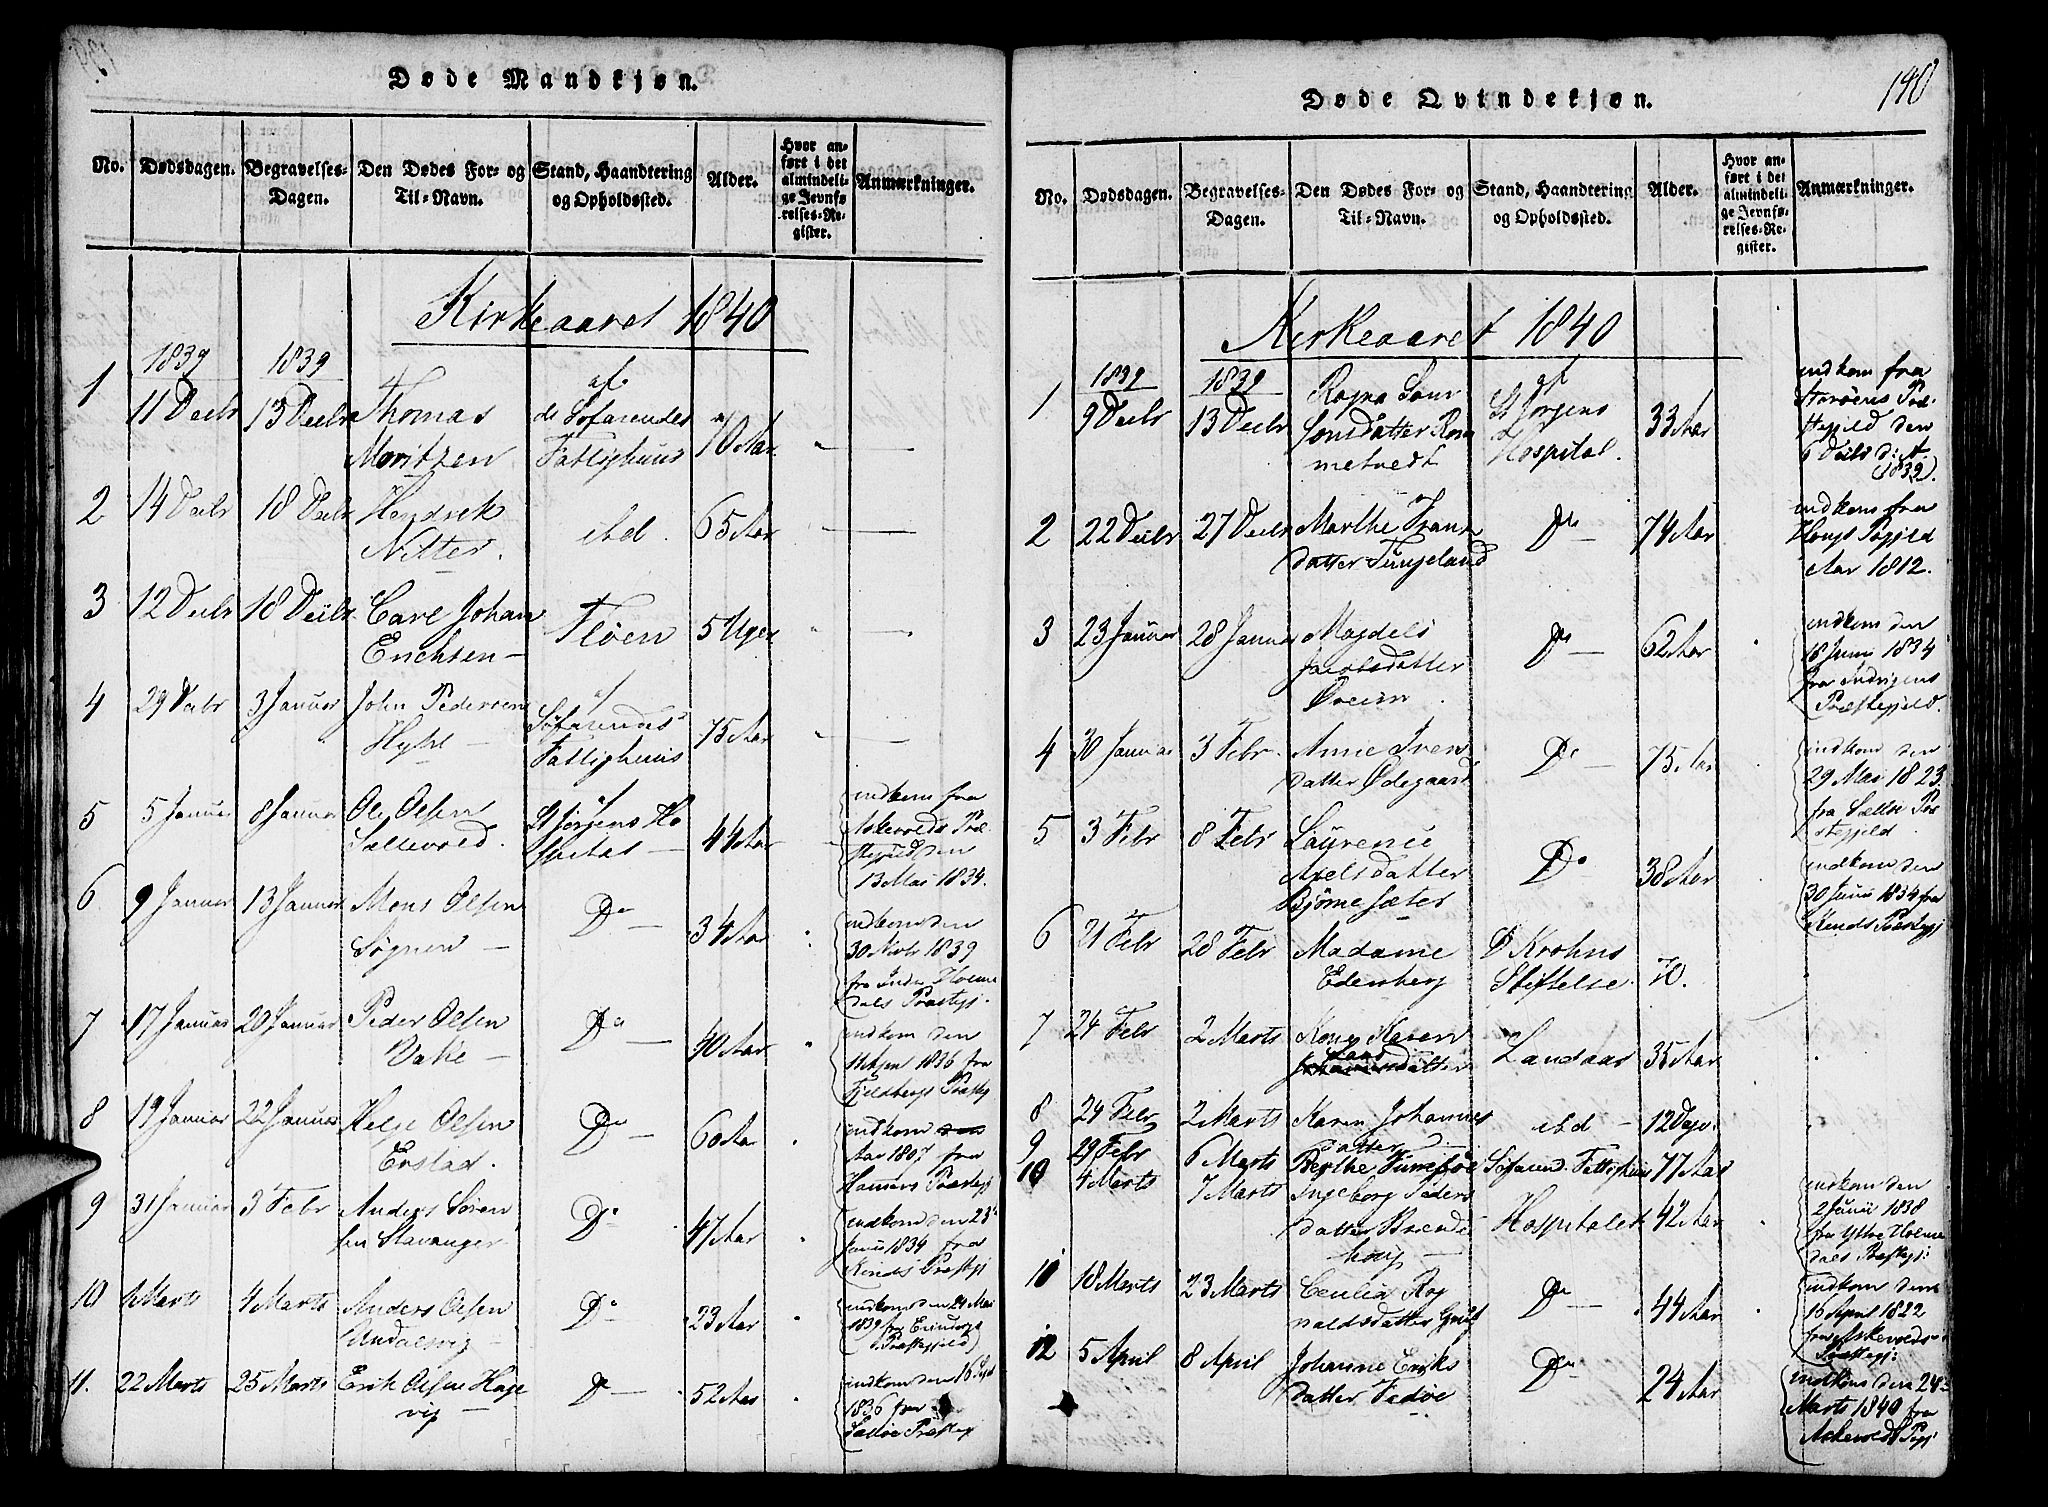 Døde Mandkjøn.
No.
Dødsdagen.
Begravelses-
Dagen.
Den Dødes For- og
Til-Navn.
Stand, Haandtering
og Opholdssted.
Alder.
Hvor an-
ført i det
almindeli-
ge Jevnfø-
relses-Re-
gister.
Anmærkninger.
Kirkeaaret 1840
1839
1839
1
11 Decbr
13 Decbr
Thomas
Moritzen
af
de Søfarendes
Fattighuus
70 Aar
2
14 Decbr
18 Decbr
Hendrik
Nitter.
ibd.
65 Aar
3
12 Decbr
18 Decbr
Carl Johan
Erichsen
Fløen
5 Uger
4
29 Decbr
3 Januar
John Pedersen
Søfarendes
Fattighuus
75 Aar
5
5 Januar
8 Januar
Ole Olsen
Sellevold.
St Jørgens Ho
spital
44 Aar
indkom fra
Askevolds Præ
stegield den
13 Mai 1834.
6
9 Januar
13 Januar
Mons Olsen
Sognen
Do
34 Aar
indkom den
30 Novbr 1839
fra Indre Holme
dals Præstegj.
7
17 Januar
20 Januar
Peder Olsen
Vake
Do
40 Aar
indkom den
1836 fra
Fjeldbergs Præstegj
8
19 Januar
22 Januar
Helge Olsen
Erstad.
Do
60 Aar
indkom
Aar 1807 fra
Hammers Præstegj
9
31 Januar
3 Febr
Anders Søren
sen Stavanger
Do
47 Aar
indkom den 23
Junii 1834 fra
Kinds Præstegj
10
1 Marts
4 Marts
Anders Olsen
Do
23 Aar
indkom den 24 Mai
1839 fra
Præstegjeld
11.
22 Marts
25 Marts
Erik Olsen Hage
vig
Do
52 Aar
indkom den 16 Sept
1836 fra
Præstegj
Døde Qvindekjøn.
140
No.
Dødsdagen.
Begravelses-
Dagen.
Den Dødes For- og
Til-Navn.
Stand, Haandtering
og Opholdssted.
Alder.
Hvor an-
ført i det
almindeli-
ge Jevnfø-
relses-Re-
gister.
Anmærkninger.
Kirkeaaret 1840
1839
1839
1
9 Decbr
13 Decbr
Ragna Sam
sonsdatter Rom
metvedt
af
St Jørgens
Hospital.
33 Aar
indkom fra
Storøens Præ-
stegjeld den
6 Decbr d: A.
(1839).
2
22 Decbr
27 Decbr
Marthe Frans
datter Tungeland
Do
74 Aar
indkom fra
Hougs Pgjeld
Aar 1812.
3
23 Januar
28 Januar
Magdeli
Jacobsdatter
Do
62 Aar
indkom den
18 Junii 1834
fra Indvigens
Præstegjeld.
4
30 Januar
3 Febr.
Anne Ivers
datter Ødegaard
Do
75 Aar
indkom den
29 Mai 1823
fra Præ
stegjeld.
5
3 Febr
8 Febr
Laurence
Axelsdatter
Bjørnesæter
Do
38 Aar
indkom den
30 Junii 1834 fra
Kinds Præstegj
6
21 Febr
28 Febr
Madame
Edenberg
D Krohns
Stiftelse.
70.
7
24 Febr
2 Marts
Kone Karen
Lars
datter
Landaas
35 Aar
8
24 Febr
2 Marts
Karen Johannes
datter
ibd
12 Dage.
9
29 Febr
6 Marts
Berthe
Søfarend. Fattighuus
77 Aar
10
4 Marts
7 Marts
Ingeborg Peders
datter Brende
houg
Hospitalet
42 Aar
indkom den
2 Junii 1838
fra Yttre Holme
dals Præstegj:
18 Marts
23 Marts
Cecilia Rog
naldsdatter
Do
44 Aar
indkom den
16 April 1822
fra Askevolds
Præstegj:
12
5 April
8 April
Johanne Eriks
datter Tedøe
Do
24 Aar
indkom den 24
Marts 1840 fra
Askevold Pgj